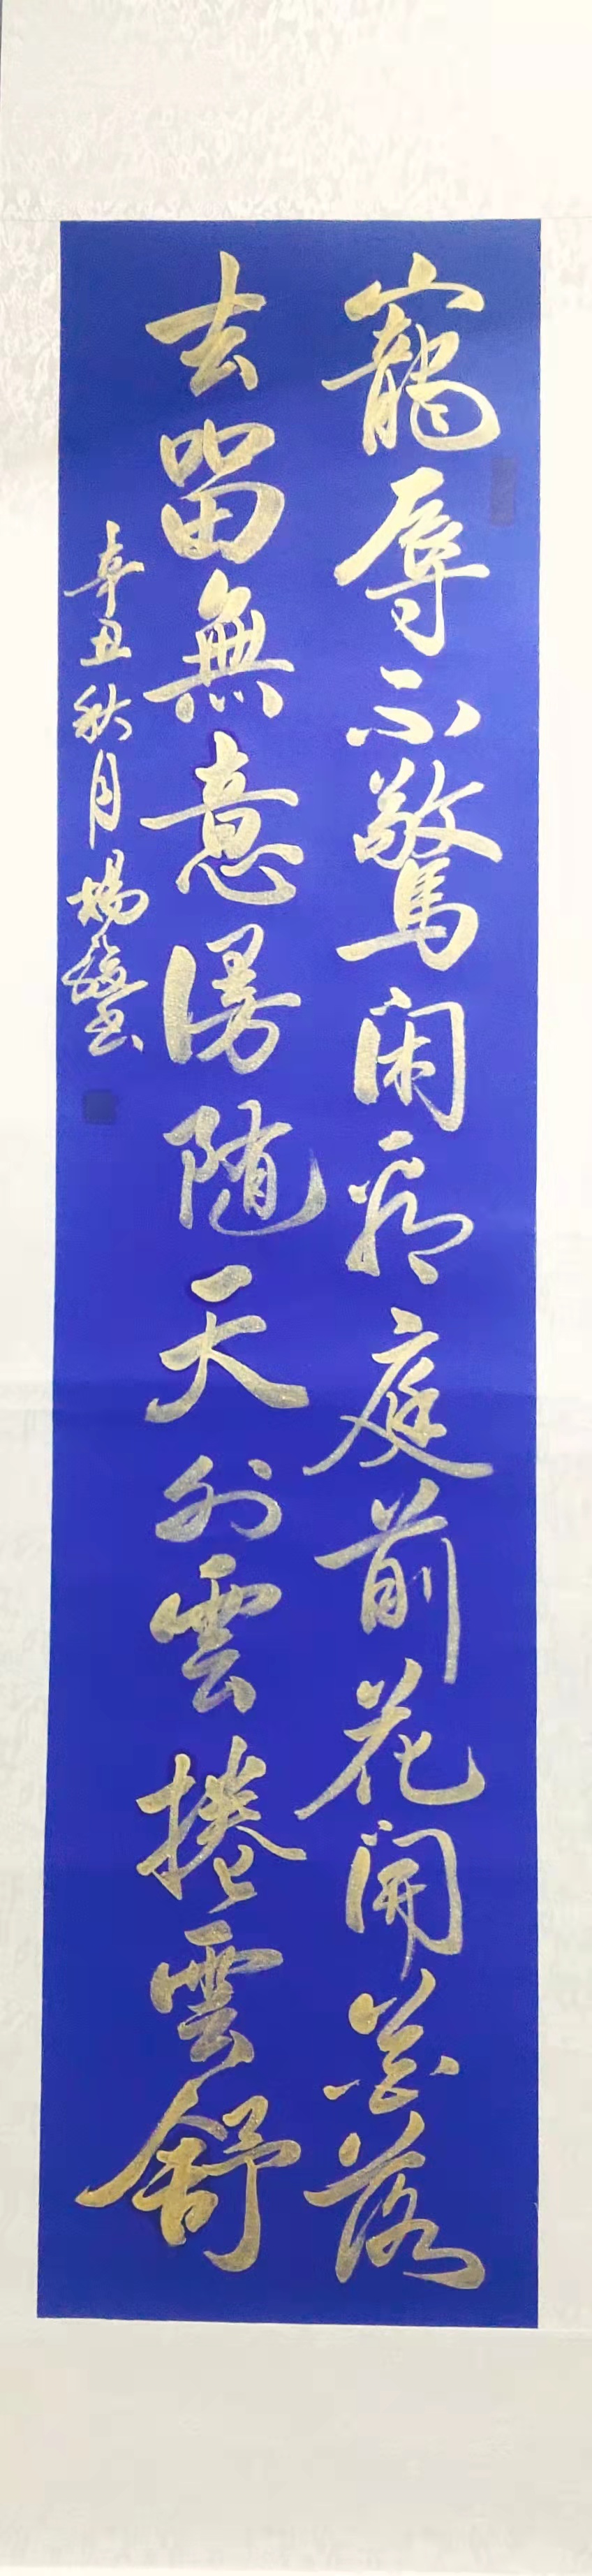 寵辱不驚闲看庭前花開花落
去留無意漫随天外雲捲雲舒
辛丑秋月楊書